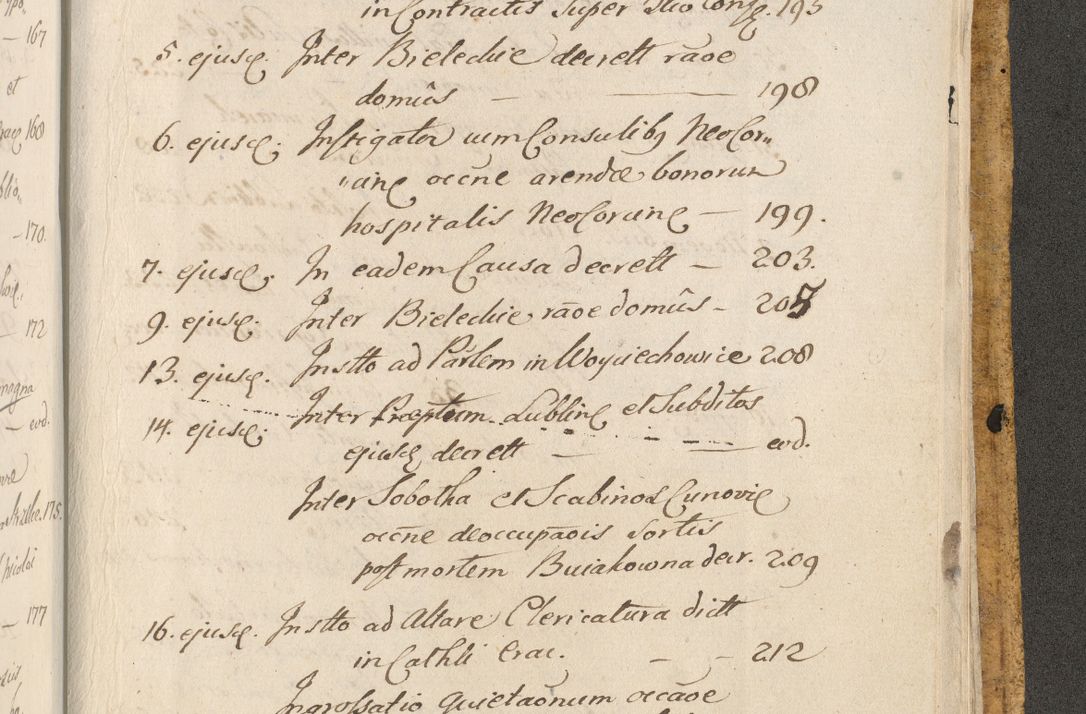 in Contractis super
5. ejusq; Inter Bielechie decrett rāoe
domûs — 198
6. ejusq; Instigator cum Consulibq NeoCor„
„cinę occne arendæ bonorum
hospitalis NeoCorcinę — 199.
7. ejusq; In eadem Causa decrett — 203.
9. ejusq; Inter Bielechie rāoe domûs — 205
13. ejusq. Instto ad Parlem in Woyciechowice 208
14. ejusq; Inter Præptum Lublinę et Subditos
ejusq decrett — eod.
Inter Sobotka et Scabinos Cunovię
occne deoccupāois Sortis
post mortem Buiakowna decr. 209
16. ejusq. Instto ad Altare Clericatura dictt
in Cathli Crac. — 212
Ingrossatio quietaōnum occāoe
— 167
et
168
— 170.
— 172
magna
— eod.
175.
— 177